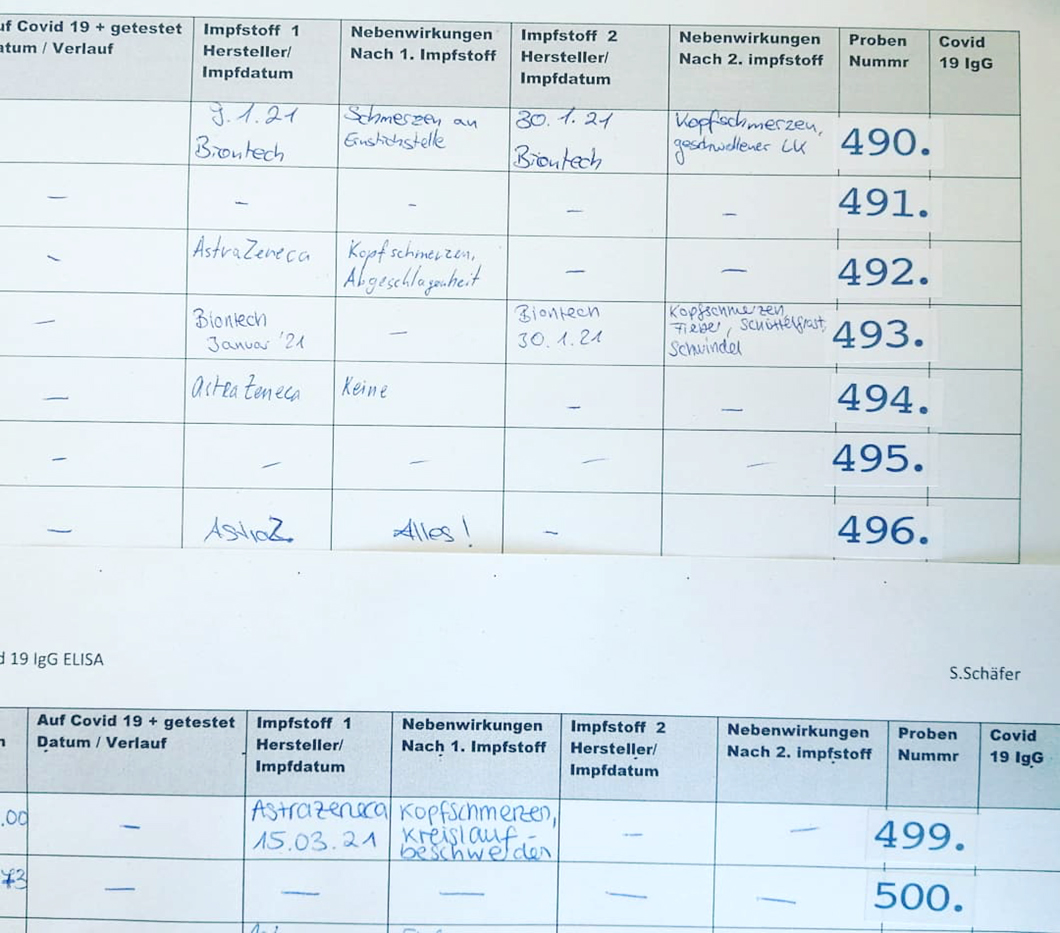 uf Covid 19 + getestet
atum / Verlauf
Impfstoff 1
Hersteller/
Impfdatum
Nebenwirkungen
Nach 1. Impfstoff
Impfstoff 2
Hersteller/
Impfdatum
Nebenwirkungen
Nach 2. impfstoff
Proben
Nummr
Covid
19 IgG
9.1.21
Biontech
Schmerzen an
Einstichstelle
30.1.21
Biontech
Kopfschmerzen,
geschwollener LK
490.
— – - — — 491.
AstraZeneca
Kopfschmerzen,
Abgeschlagenheit
— —
492.
—
Biontech
Januar '21
—
Biontech
30.1.21
Kopfschmerzen
Fieber, Schüttelfrost,
Schwindel
493.
— Astra Zeneca Keine — — 494.
— — — — — 495.
— AstraZ. Alles! — 496.
d 19 IgG ELISA
S.Schäfer
Auf Covid 19 + getestet
Datum / Verlauf
Impfstoff 1
Hersteller/
Impfdatum
Nebenwirkungen
Nach 1. Impfstoff
Impfstoff 2
Hersteller/
Impfdatum
Nebenwirkungen
Nach 2. impfstoff
Proben
Nummr
Covid
19 IgG
.00
—
Astrazeneca
15.03.21
Kopfschmerzen,
kreislauf-
beschwerden
— —
499.
73 — — — — — 500.